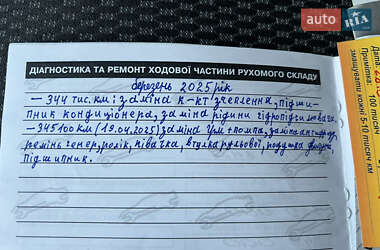 auto RIA
ДІАГНОСТИКА ТА РЕМОНТ ХОДОВОЇ ЧАСТИНИ РУХОМОГО СКЛАДУ
березень 2025 рік
– 344 тис.км: заміна к-кт зчеплення, підши-
пник кондиціонера, заміна рідини гідропідсилювача
– 345100 км (19.04.2025) заміна грм + помпа, заміна антифризу,
ремінь генер, ролік, півачка, втулка рульової, подушка двигуна,
підшипник.
Дата
Примітка:
змащувати кожні 5-10 тисяч км
100 тисяч км